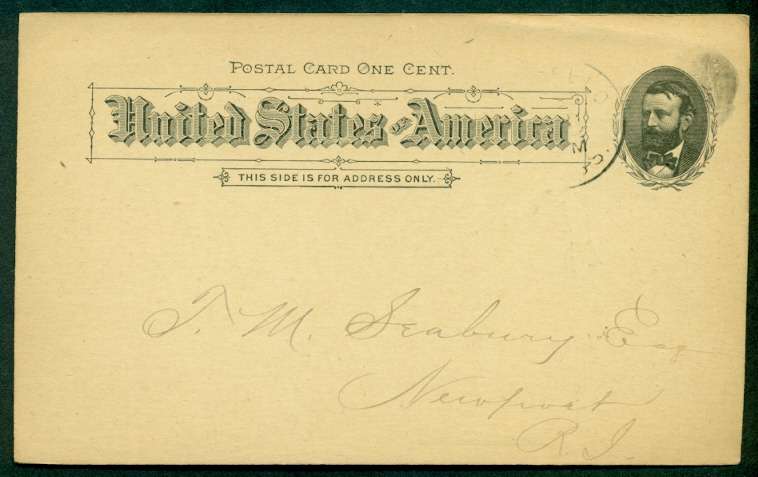 POSTAL CARD ONE CENT.
United States of America
THIS SIDE IS FOR ADDRESS ONLY.
T. M. Seabury Esq
Newport
R. I.